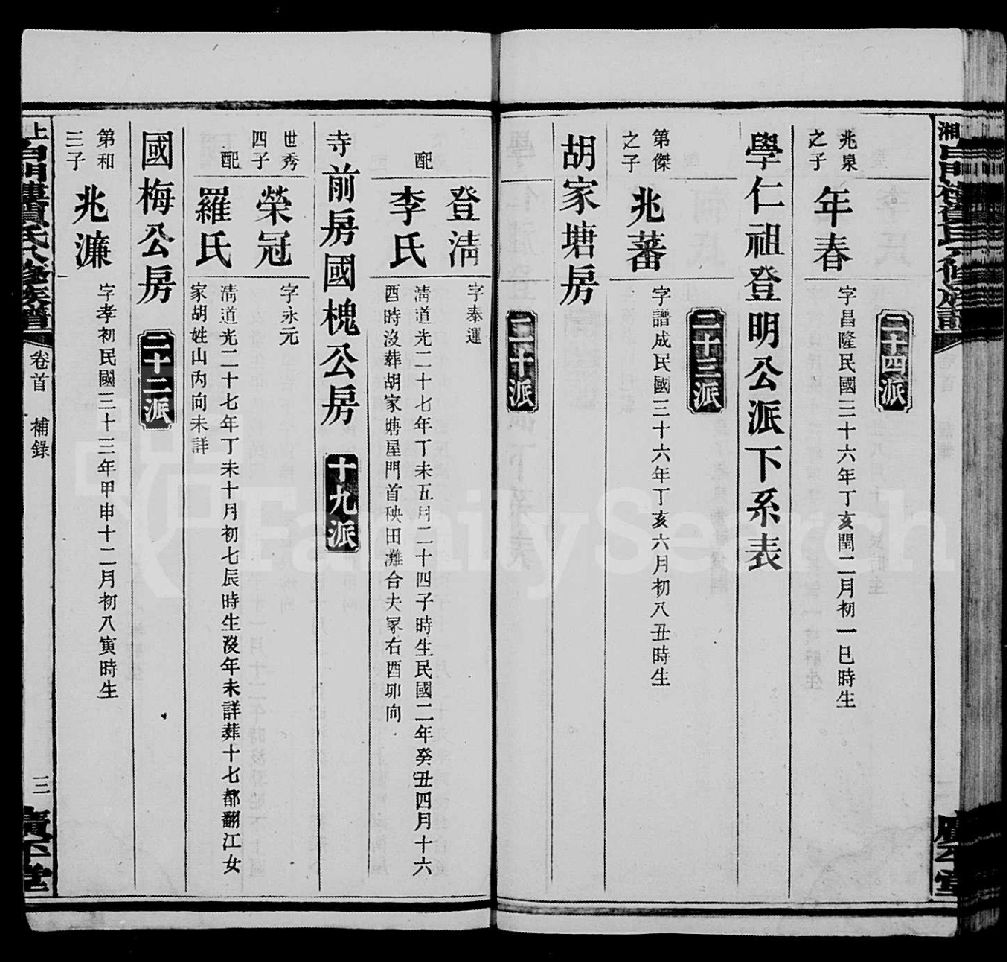 二十四派
兆泉之子
年春
字昌隆民國三十六年丁亥閏二月初一巳時生
學仁祖登明公派下系表
二十三派
第傑之子
兆蕃
字譜成民國三十六年丁亥六月初八丑時生
胡家塘房
二十派
登清
字奉運
配
李氏
清道光二十七年丁未五月二十四子時生民國二年癸丑四月十六
酉時沒葬胡家塘屋門首秧田灘合夫冢右酉卯向
寺前房國槐公房
十九派
世秀四子
榮冠
字永元
配
羅氏
清道光二十七年丁未十月初七辰時生沒年未詳葬十七都翻江女
家胡姓山內向未詳
國梅公房
二十二派
第和三子
兆濂
字孝初民國三十三年甲申十二月初八寅時生
卷首
補錄
三
FamilySearch